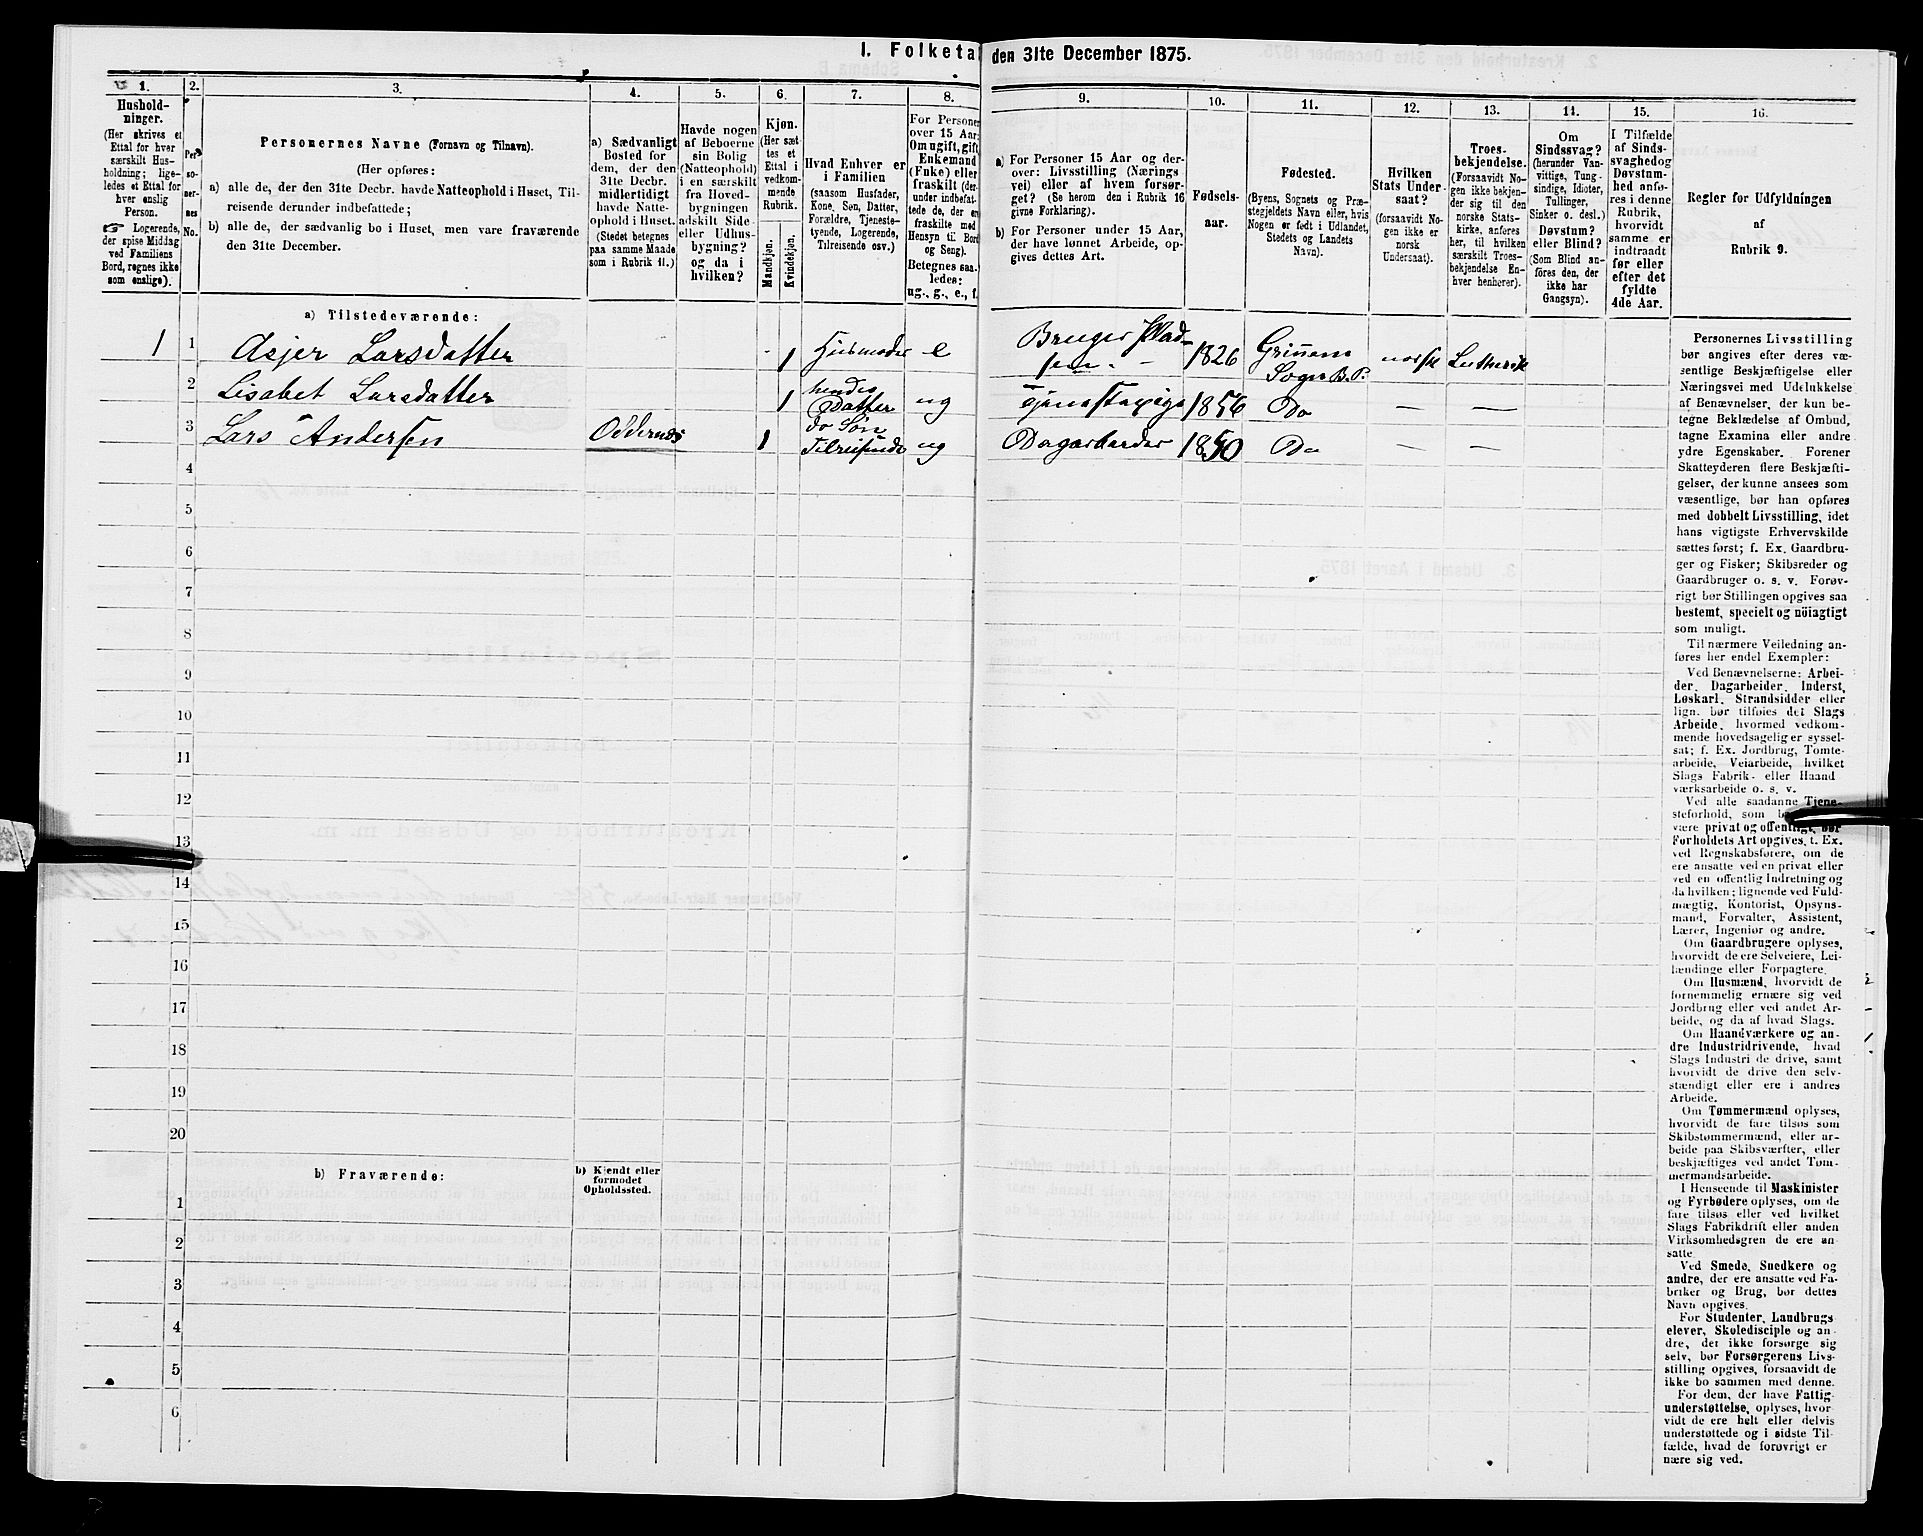 I. Folketal den 31te December 1875.
1.
Hushold-
ninger.
(Her skrives et
Ettal for hver
særskilt Hus-
holdning; lige-
ledes et Ettal for
hver enslig
Person.
☞ Logerende,
der spise Middag
ved Familiens
Bord, regnes ikke
som enslige).
2.
Per-
so-
ner-
nes
No.
3.
Personernes Navne (Fornavn og Tilnavn).
(Her opføres:
a) alle de, der den 31te Decbr. havde Natteophold i Huset, Til-
reisende derunder indbefattede;
b) alle de, der sædvanlig bo i Huset, men vare fraværende
den 31te December.
4.
a) Sædvanligt
Bosted for
dem, der den
31te Decbr.
midlertidigt
havde Natte-
ophold i Huset.
(Stedet betegnes
paa samme Maade
som i Rubrik 11.)
5.
Havde nogen
af Beboerne
sin Bolig
(Natteophold)
i en særskilt
fra Hoved-
bygningen
adskilt Side-
eller Udhus-
bygning?
og da i
hvilken?
6.
Kjøn.
(Her sæt-
tes et
Ettal i
vedkom-
mende
Rubrik.
Mandkjøn.
Kvindekjøn.
7.
Hvad Enhver er
i Familien
(saasom Husfader,
Kone, Søn, Datter,
Forældre, Tjeneste-
tyende, Logerende,
Tilreisende osv.)
8.
For Personer
over 15 Aar:
Om ugift, gift,
Enkemand
(Enke) eller
fraskilt (der-
under indbefat-
tede de, der er
fraskilte med
Hensyn til Bord
og Seng).
Betegnes saa-
ledes:
ug., g., e., f.
9.
a) For Personer 15 Aar og der-
over: Livsstilling (Nærings
vei) eller af hvem forsør-
get? (Se herom den i Rubrik 16
givne Forklaring).
b) For Personer under 15 Aar,
der have lønnet Arbeide, op-
gives dettes Art.
10.
Fødsels-
aar.
11.
Fødested.
(Byens, Sognets og Præ-
stegjeldets Navn eller, hvis
Nogen er født i Udlandet,
Stedets og Landets
Navn).
12.
Hvilken
Stats Under-
saat?
(forsaavidt No-
gen ikke er
norsk
Undersaat).
13.
Troes-
bekjendelse.
(Forsaavidt No-
gen ikke bekjen-
der sig til den
norske Stats-
kirke, anføres
her, til hvilken
særskilt Troes-
bekjendelse En-
hver henhører).
14.
Om
Sindssvag?
(herunder Van-
vittige, Tung-
sindige, Idioter,
Tullinger,
Sinker o. desl.)
Døvstum?
eller Blind?
(Som Blind an-
føres den, der
ikke har
Gangsyn).
15.
I Tilfælde
af Sinds-
svaghed og
Døvstum-
hed anfø-
res i denne
Rubrik,
hvorvidt
samme er
indtraadt
før eller
efter det
fyldte
4de Aar.
16.
Regler for Udfyldningen
af
Rubrik 9.
a) Tilstedeværende:
1 1 Asjer Larsdatter 1 Husmoder e Bruger Plad-
sen. 1826 Grimens
Sogn B. P. norsk Luthersk
2 Lisabet Larsdatter 1 hendes
Datter ug Tjenestepige 1856 Do — —
3 Lars Andersen Oddernes 1 do Søn
Tilreisende ug Dagarbeider 1850 Do — —
4
5
6
7
8
9
10
11
12
13
14
15
16
17
18
19
20
b) Fraværende:
b) Kjendt eller
formodet
Opholdssted.
1
2
3
4
5
6
Personernes Livsstilling
bør angives efter deres væ-
sentlige Beskjæftigelse eller
Næringsvei med Udelukkelse
af Benævnelser, der kun be-
tegne Beklædelse af Ombud,
tagne Examina eller andre
ydre Egenskaber. Forener
Skatteyderen flere Beskjæfti-
gelser, der kunne ansees som
væsentlige, bør han opføres
med dobbelt Livsstilling, idet
hans vigtigste Erhvervskilde
sættes først; f. Ex. Gaardbru-
ger og Fisker; Skibsreder og
Gaardbruger o. s. v. Forøv-
rigt bør Stillingen opgives saa
bestemt, specielt og nöiagtigt
som muligt.
Til nærmere Veiledning an-
føres her endel Exempler:
Ved Benævnelserne: Arbei-
der, Dagarbeider, Inderst,
Løskarl, Strandsidder eller
lign. bør tilføies det Slags
Arbeide, hvormed vedkom-
mende hovedsagelig er syssel-
sat; f. Ex. Jordbrug, Tomte-
arbeide, Veiarbeide, hvilket
Slags Fabrik- eller Haand
værksarbeide o. s. v.
Ved alle saadanne Tjene-
steforhold, som
være privat og offentligt, bør
Forholdets Art opgives, t. Ex.
ved Regnskabsførere, om de
ere ansatte ved en privat eller
ved en offentlig Indretning og
da hvilken; lignende ved Fuld-
mægtig, Kontorist, Opsyns-
mand, Forvalter, Assistent,
Lærer, Ingeniør og andre.
Om Gaardbrugere oplyses,
hvorvidt de ere Selveiere, Lei-
lændinge eller Forpagtere.
Om Husmænd, hvorvidt de
fornemmelig ernære sig ved
Jordbrug eller ved andet Ar-
beide, og da af hvad Slags.
Om Haandværkere og an-
dre Industridrivende, hvad
Slags Industri de drive, samt
hvorvidt de drive den selv-
stændigt eller ere i andres
Arbeide.
Om Tømmermænd oplyses,
hvorvidt de fare tilsøs som
Skibstømmermænd, eller ar-
beide paa Skibsværfter, eller
beskjæftiges ved andet Tøm-
mermandsarbeide.
I Henseende til Maskinister
og Fyrbødere oplyses, om de
fare tilsøs eller ved hvilket
Slags Fabrikdrift eller anden
Virksomhedsgren de ere an-
satte.
Ved Smede, Snedkere og
andre, der ere ansatte ved Fa-
briker og Brug, bør dettes
Navn opgives.
For Studenter, Landbrugs
elever, Skoledisciple og an-
dre, der ikke forsørge sig
selv, bør Forsørgerens Livs-
stilling opgives, forsaavidt de
ikke bo sammen med denne.
For dem, der have Fattig-
understøttelse, oplyses, hvor-
vidt de ere helt eller delvis
understøttede og i sidste Til-
fælde, hvad de forøvrigt er
nære sig ved.